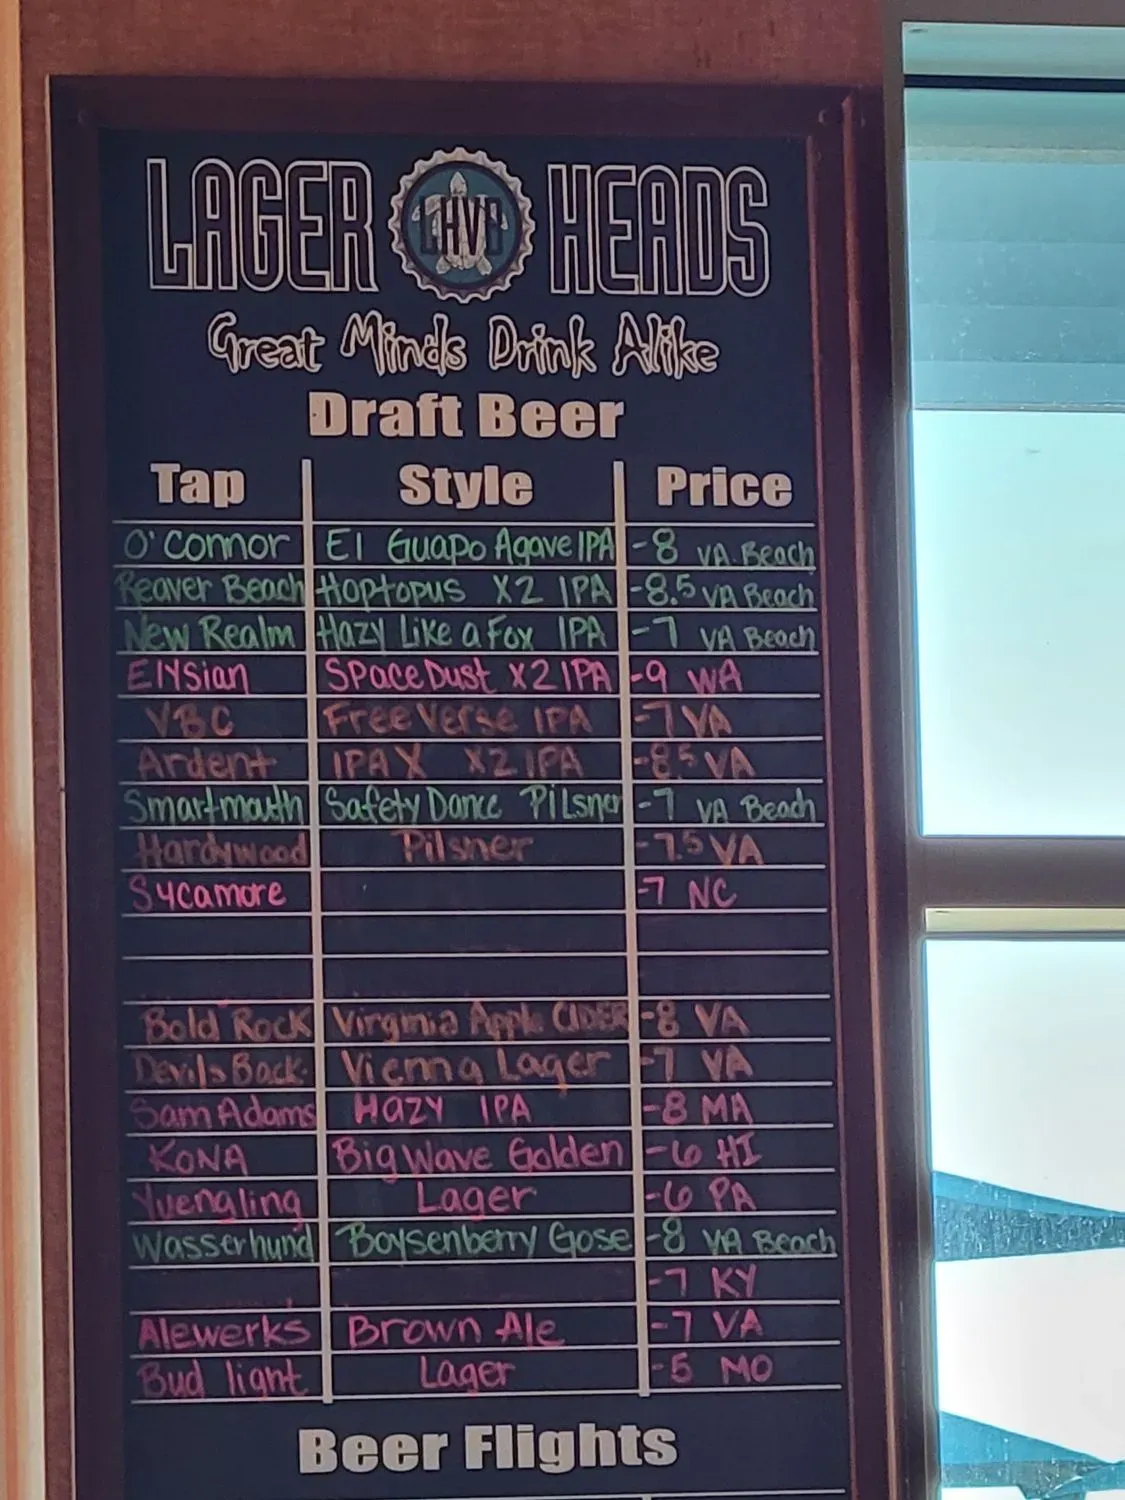 LAGER LHVB HEADS
Great Minds Drink Alike
Draft Beer
Tap Style Price
O'Connor El Guapo Agave IPA -8 VA. Beach
Reaver Beach Hoptopus X2 IPA -8.5 VA Beach
New Realm Hazy Like a Fox IPA -7 VA Beach
Elysian Space Dust X2 IPA -9 WA
VBC Free Verse IPA -7 VA
Ardent IPA X X2 IPA -8.5 VA
Smartmouth Safety Dance Pilsner -7 VA Beach
Hardywood Pilsner -7.5 VA
Sycamore -7 NC
Bold Rock Virginia Apple CIDER -8 VA
Devils Back. Vienna Lager -7 VA
Sam Adams Hazy IPA -8 MA
KONA Big Wave Golden -6 HI
Yuengling Lager -6 PA
Wasserhund Boysenberry Gose -8 VA Beach
-7 KY
Alewerks Brown Ale -7 VA
Bud light Lager -5 MO
Beer Flights